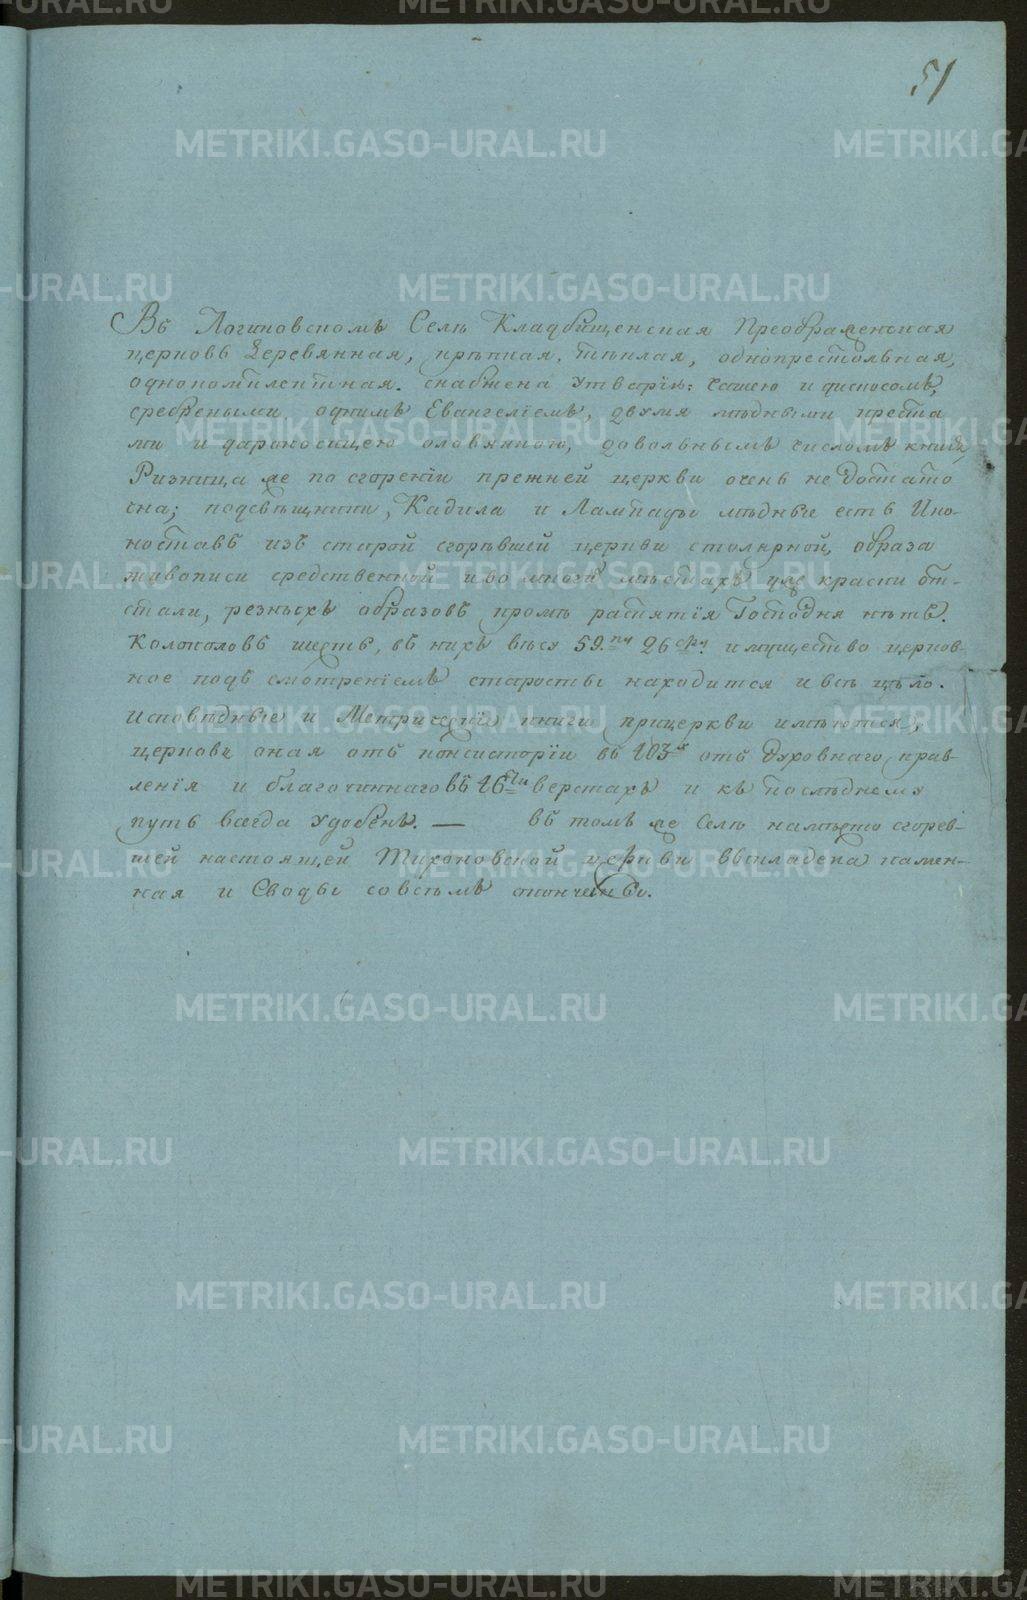 51
Въ Логиновскомъ Селѣ Кладбищенская Преображенская
церковь Деревянная, крѣпкая, тѣплая, однопрестольная,
однокомплектная. снабжена утварiю: чашею и дискосомъ,
сребреными однимъ Евангелiемъ, двумя мѣдными креста
ми и дароносицею оловянною, довольнымъ числомъ книгъ,
Ризница же по сгоренiи прежней церкви очень не достато
чна; подсвѣщники, Кадила и Лампады мѣдные есть Ико-
ностасъ изъ старой сгорѣвшей церкви столярной, образа
живописи средственной и во многихъ мѣстахъ уже краски от-
стали, резныхъ образовъ кромѣ распятiя Господня нѣтъ.
Колоколовъ шесть, въ нихъ вѣсу 59. пу 26 фу. имущество церков-
ное подъ смотренiемъ старосты находится и всѣ цѣло.
Исповѣдные и Метрическiя книги при церкви имѣются,
церковь оная отъ консисторiи въ 103х отъ Духовнаго прав-
ленiя и благочиннаго въ 16ти верстахъ и къ послѣднему
путь всегда удобенъ. — въ томъ же Селѣ на мѣсто сгорев-
шей настоящей Тихоновской церкви выкладена камен-
ная и Своды совсѣмъ окончены.
METRIKI.GASO-URAL.RU